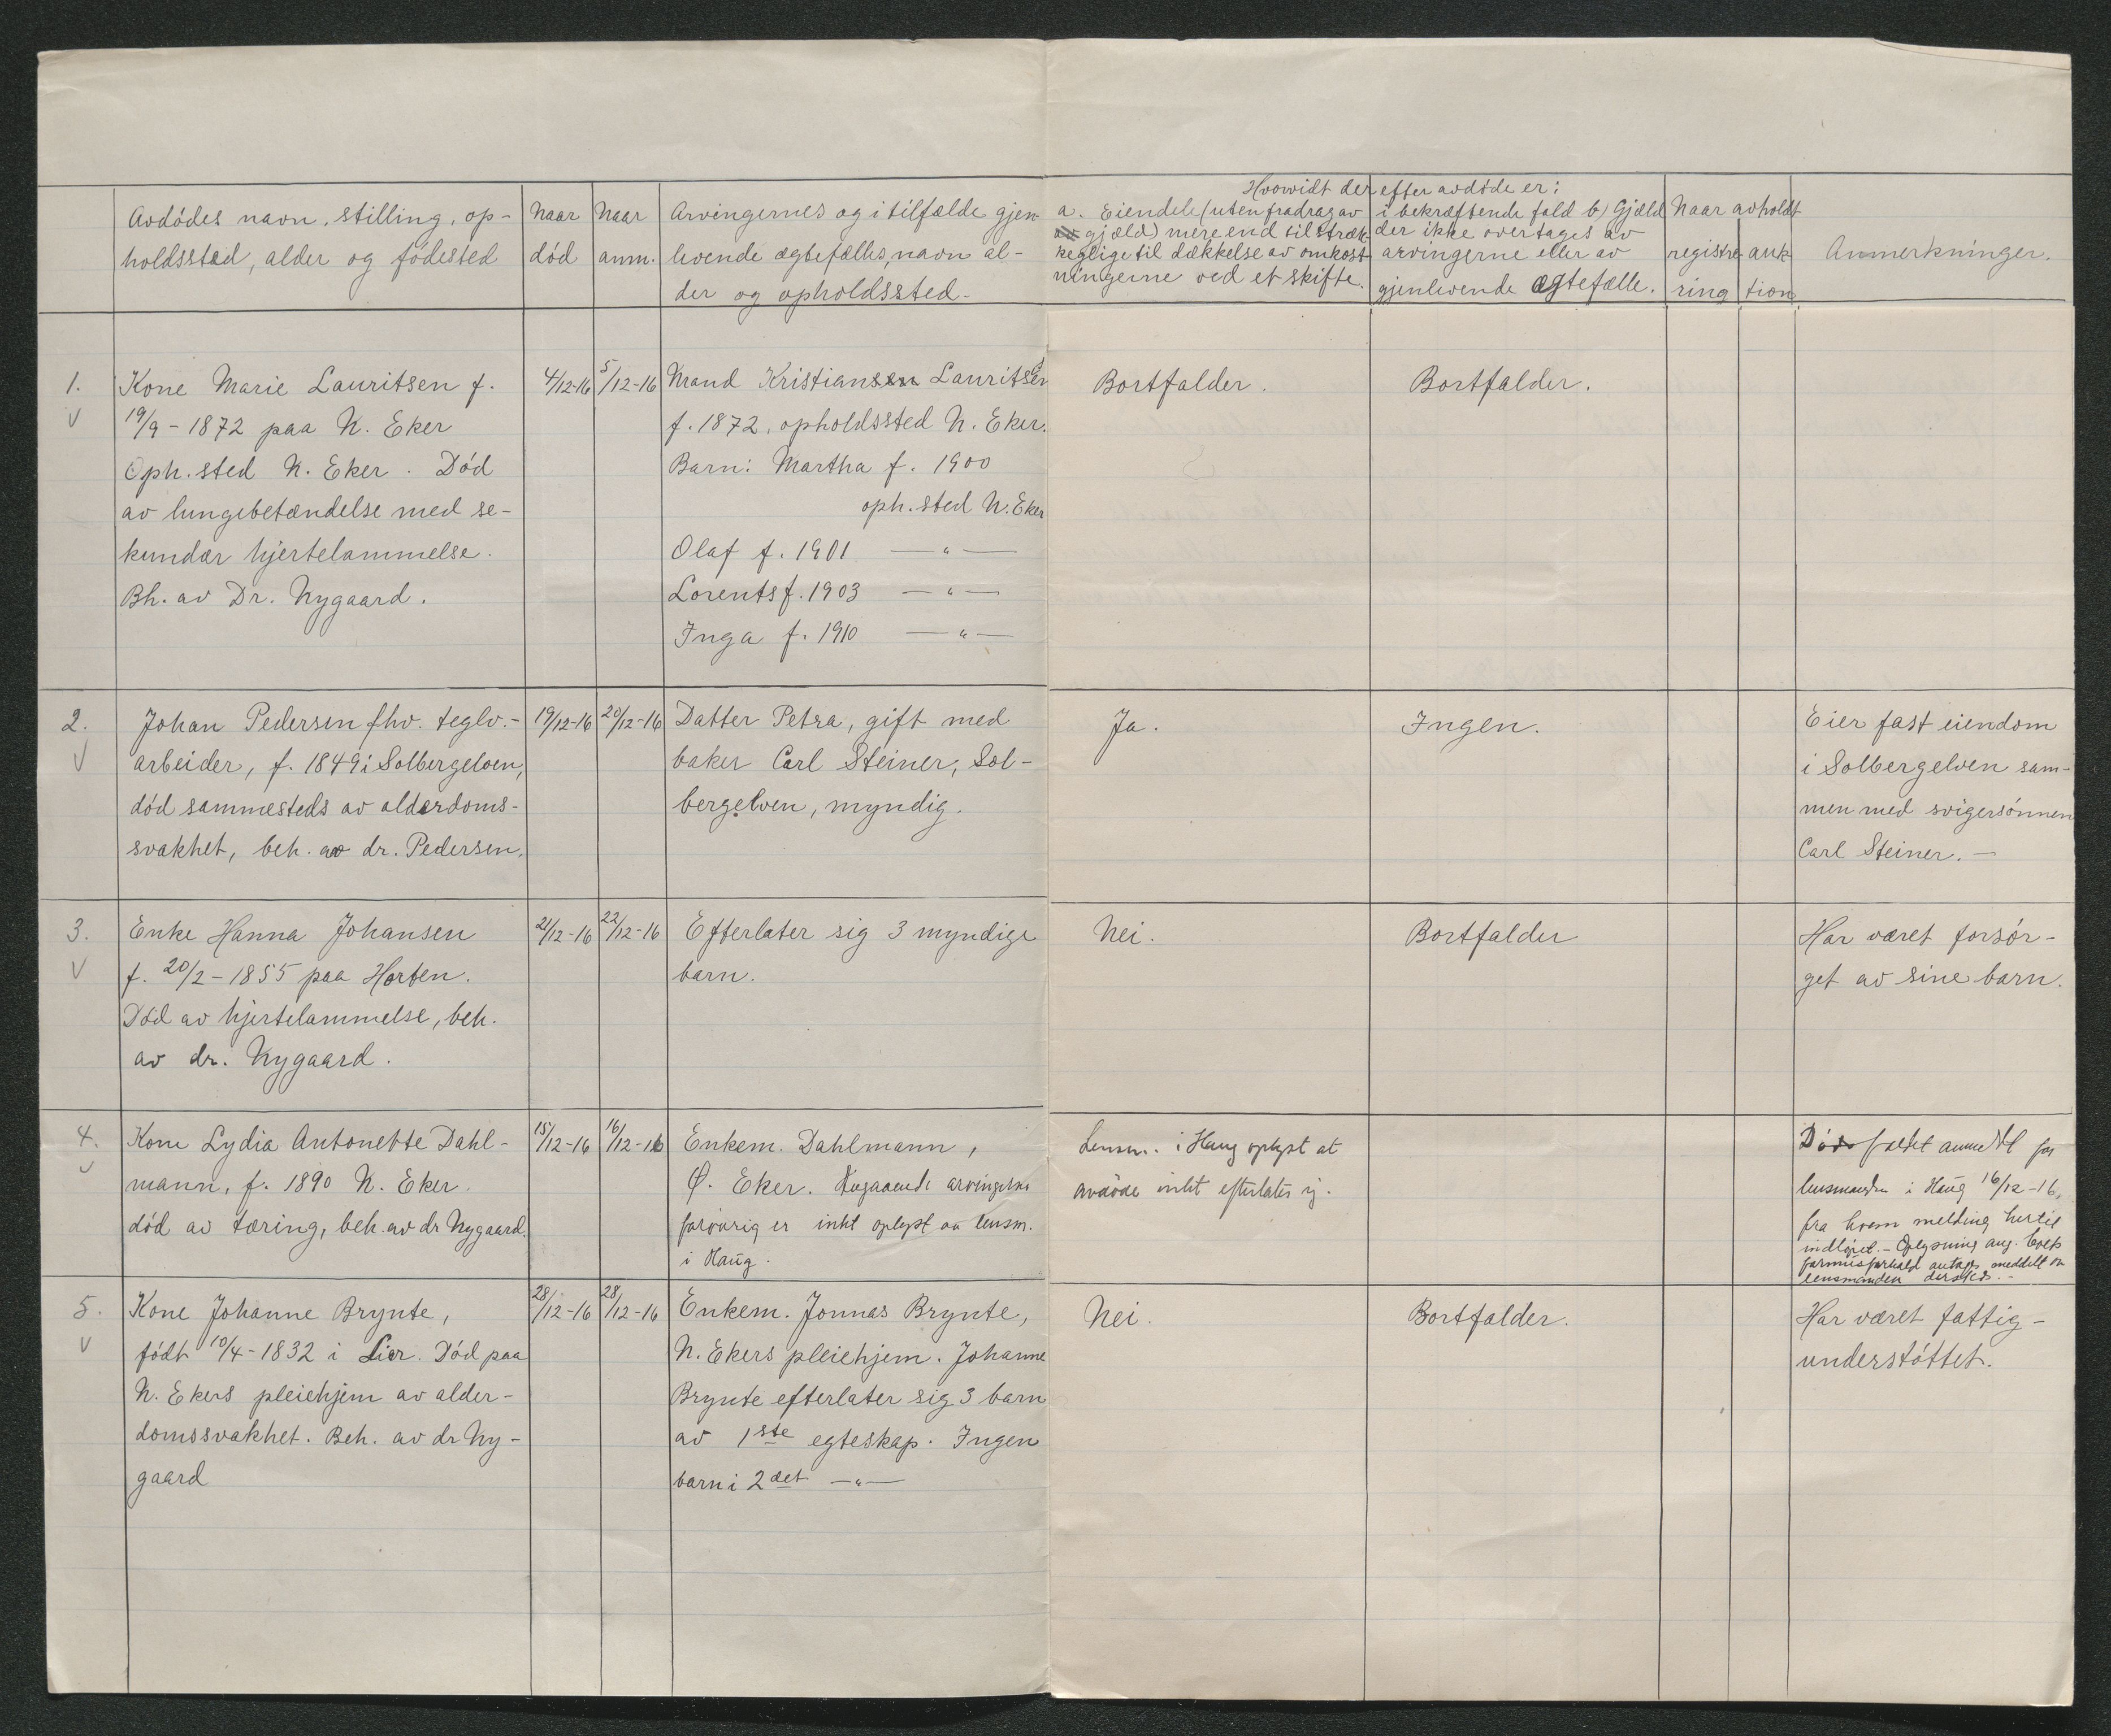 Hvorvidt der efter avdöde er:
Avdödes navn, stilling, op-
holdssted, alder og födested
Naar
död
Naar
anm.
Arvingernes og i tilfælde gjen-
levende ægtefælles, navn al-
der og opholdssted.
a. Eiendele (uten fradrag av
gjæld) mere end tilstræk-
keglige til dækkelse av omkost
ningerne ved et skifte.
i bekræftende fald b) Gjæld
der ikke overtages av
arvingerne eller av
gjenlevende ægtefælle.
Naar avholdt
registre-
ring
auk
tion
Anmerkninger.
1.
Kone Marie Lauritsen f.
19/9 - 1872 paa N. Eker
Oph.sted N. Eker. Död
av lungebetændelse med se-
kundær hjertelammelse.
Bh. av Dr. Nygaard.
4/12-16
5/12-16
Mand Kristiansen Lauritsen
f. 1872, opholdssted N. Eker.
Barn: Martha f. 1900
oph.sted N. Eker
Olaf f. 1901 — " —
Lorents f. 1903 — " —
Inga f. 1910 — " —
Bortfalder.
Bortfalder.
2.
Johan Pedersen fhv. teglv.-
arbeider, f. 1849 i Solbergelven,
död sammesteds av alderdoms-
svakhet, beh. av dr. Pedersen.
19/12-16
20/12-16
Datter Petra, gift med
baker Carl Steiner, Sol-
bergelven, myndig.
Ja.
Ingen.
Eier fast eiendom
i Solbergelven sam-
men med svigersönnen
Carl Steiner. —
3.
Enke Hanna Johansen
f. 20/2 - 1855 paa Horten.
Död av hjertelammelse, beh.
av dr. Nygaard.
21/12-16
22/12-16
Efterlater sig 3 myndige
barn.
Nei.
Bortfalder
Har været forsör-
get av sine barn.
4.
Kone Lydia Antonette Dahl-
mann, f. 1890 N. Eker.
död av tæring, beh. av dr Nygaard.
15/12-16
16/12-16
Enkem. Dahlmann,
Ø. Eker. Angaaende arvingerne
forøvrig er intet oplyst av lensm.
i Haug.
Lensm. i Haug oplyst at
avdöde intet efterlater sig.
Dødsfaldet anmeldt for
lensmanden i Haug 16/12-16,
fra hvem melding hertil
indløpet. - Oplysning ang.
formuesforhold antages meddelt av
lensmanden dersteds. -
5.
Kone Johanne Brynte,
födt 10/4 - 1832 i Lier. Död paa
N. Ekers pleiehjem av alder-
domssvakhet. Beh. av dr Ny-
gaard
28/12-16
28/12-16
Enkem. Jonnas Brynte,
N. Ekers pleiehjem. Johanne
Brynte efterlater sig 3 barn
av 1ste egteskap. Ingen
barn i 2det — " —
Nei.
Bortfalder.
Har været fattig-
understöttet.